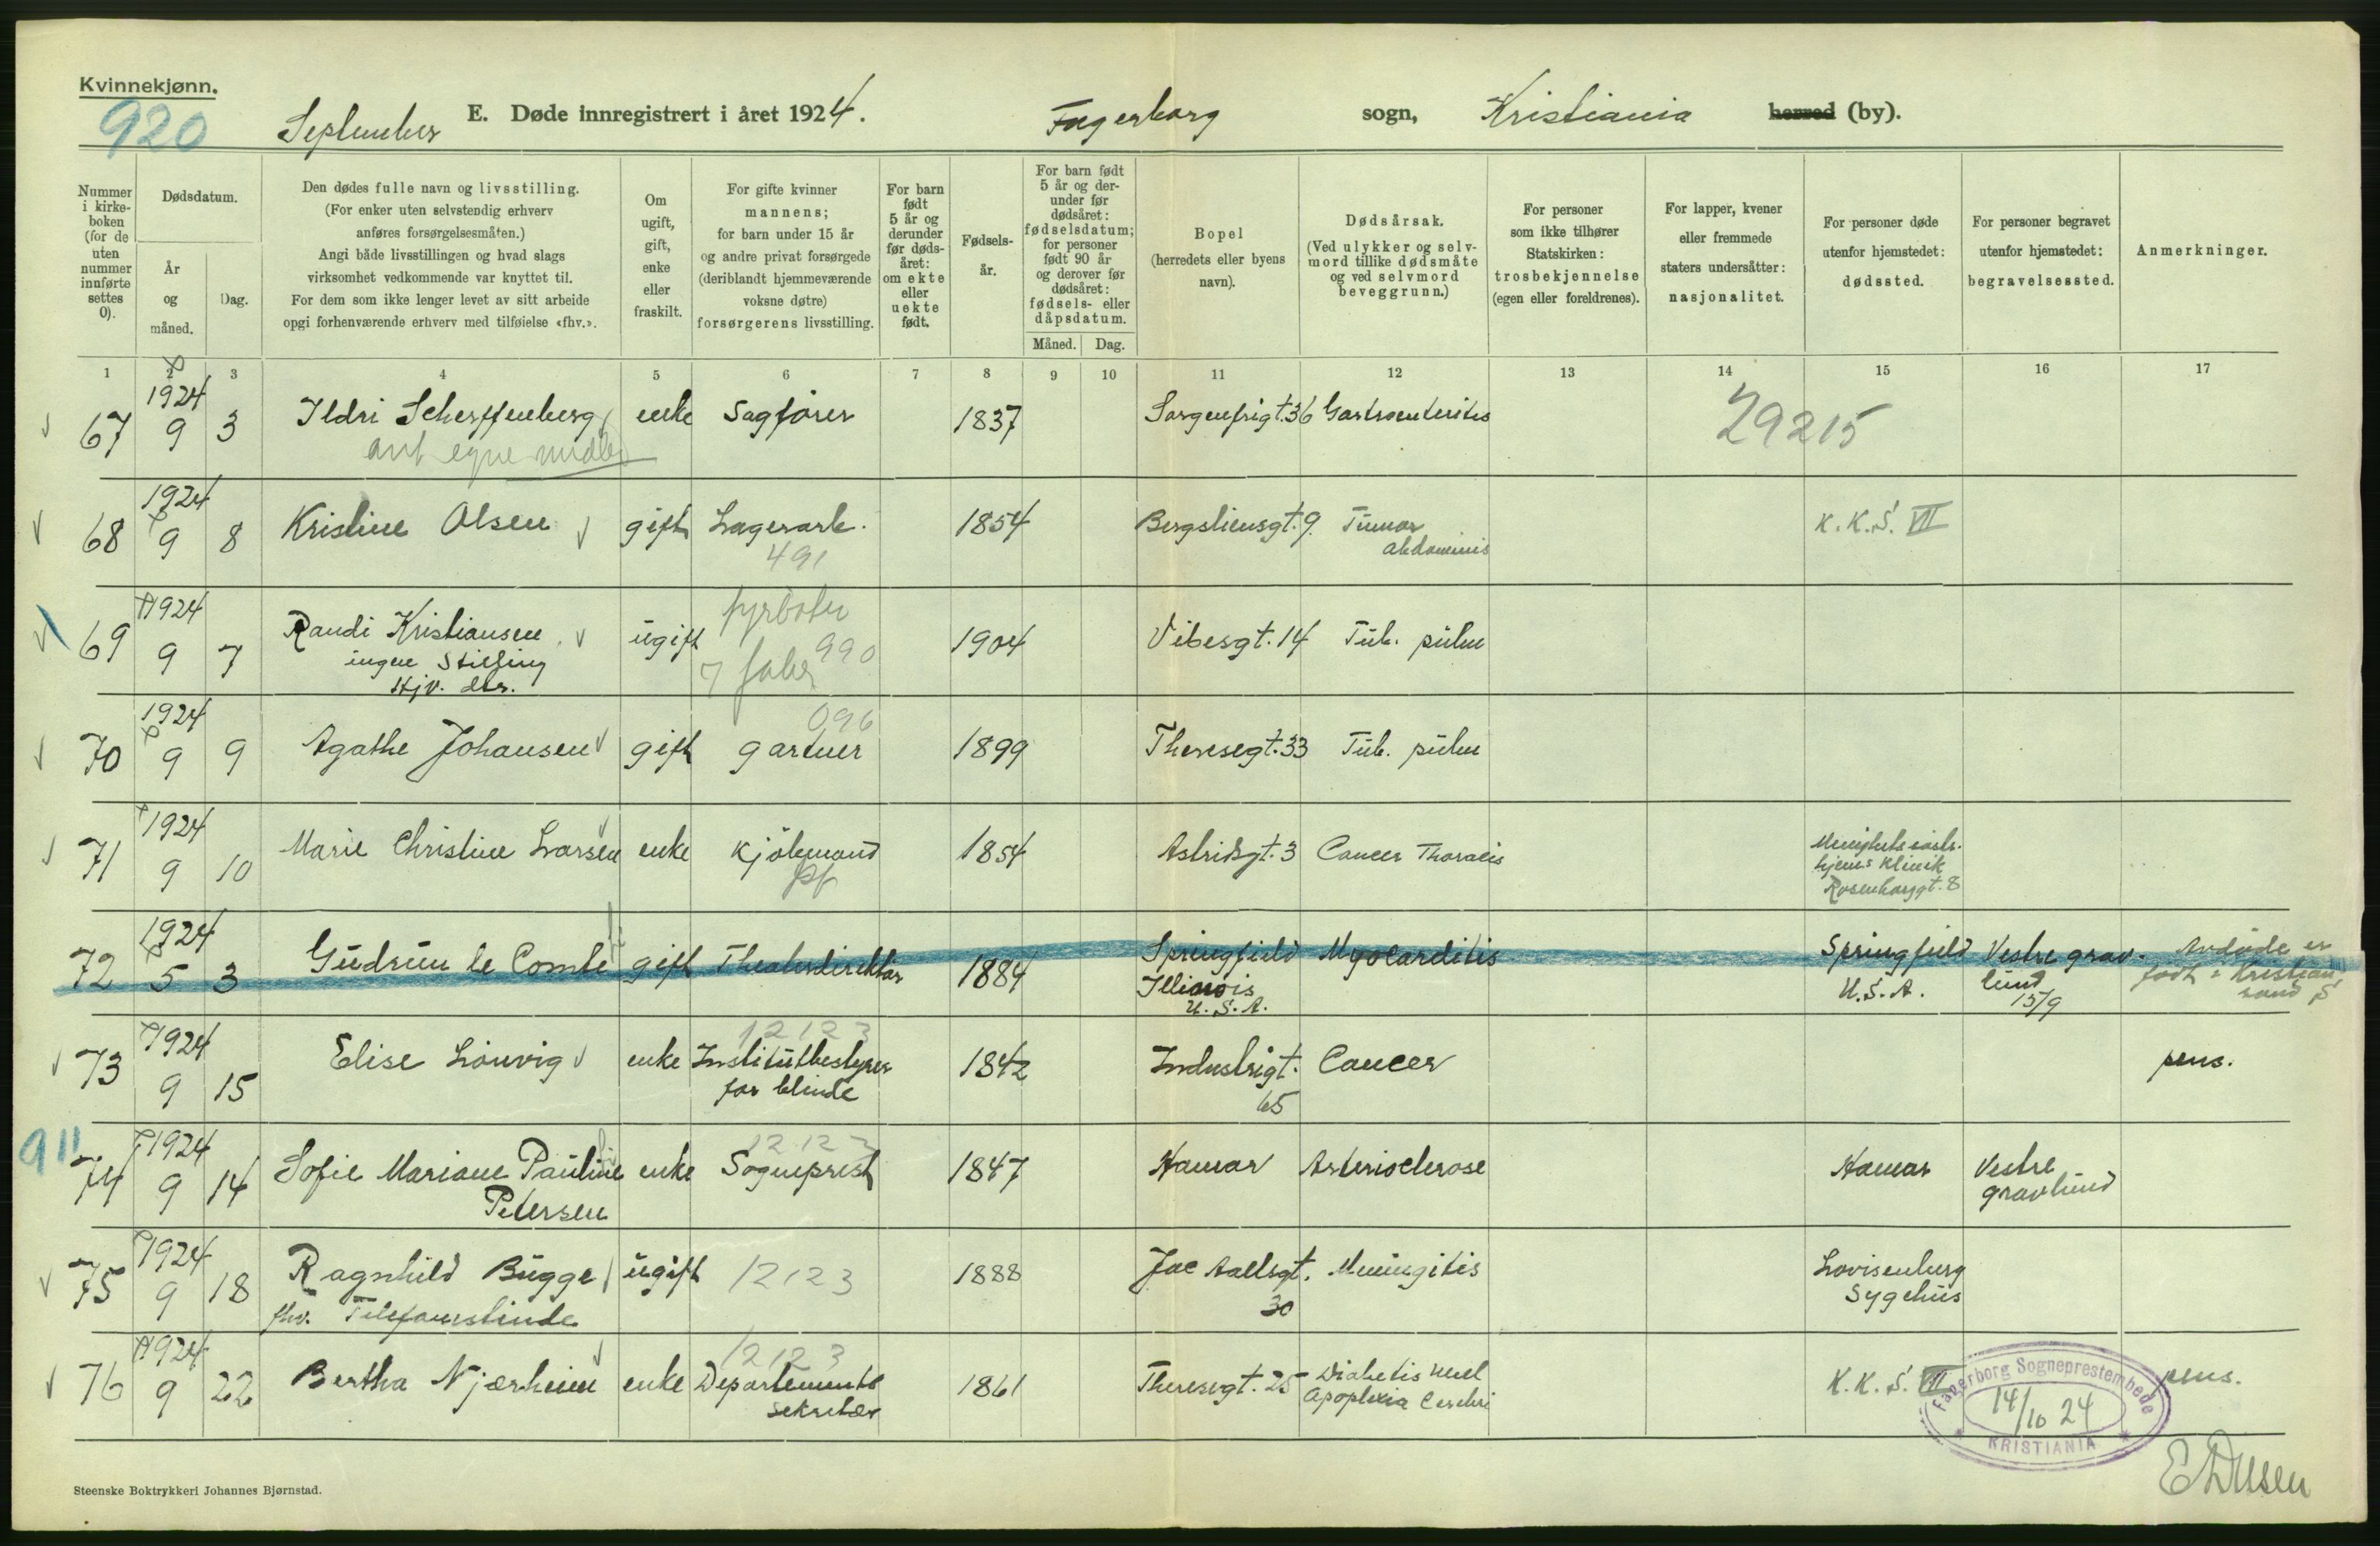 Kvinnekjønn.
920
September E. Døde innregistrert i året 1924. Fagerborg sogn, Kristiania herred (by).
Nummer i kirkeboken (for de uten nummer innførte settes 0).
Dødsdatum.
År og måned.
Dag.
Den dødes fulle navn og livsstilling.
(For enker uten selvstendig erhverv
anføres forsørgelsesmåten.)
Angi både livsstillingen og hvad slags
virksomhet vedkommende var knyttet til.
For dem som ikke lenger levet av sitt arbeide
opgi forhenværende erhverv med tilføielse «fhv.».
Om ugift, gift, enke eller fraskilt.
For gifte kvinner
mannens;
for barn under 15 år
og andre privat forsørgede
(deriblandt hjemmeværende
voksne døtre)
forsørgerens livsstilling.
For barn født 5 år og derunder før dødsåret: om ekte eller uekte født.
Fødselsår.
For barn født 5 år og derunder før dødsåret: fødselsdatum; for personer født 90 år og derover før dødsåret: fødsels- eller dåpsdatum.
Måned. Dag.
Bopel
(herredets eller byens
navn).
Dødsårsak.
(Ved ulykker og selvmord tillike dødsmåte og ved selvmord beveggrunn.)
For personer
som ikke tilhører
Statskirken:
trosbekjennelse
(egen eller foreldrenes).
For lapper, kvener
eller fremmede
staters undersåtter:
nasjonalitet.
For personer døde
utenfor hjemstedet:
dødssted.
For personer begravet
utenfor hjemstedet:
begravelsessted.
Anmerkninger.
1 2 3 4 5 6 7 8 9 10 11 12 13 14 15 16 17
67 1924 9 3 Ildri Scherffenberg enke Sagfører 1837 Sorgenfrigt. 36 Gastroenteritis 29215
egne midler
68 1924 9 8 Kristine Olsen gift Lagerarb. 1854 Bergsliensgt. 9. Tumor abdominis K. K. S. VII
491
69 1924 9 7 Randi Kristiansen ugift fyrbøter 1904 Vibesgt. 14 Tub. pulm
ingen Stilling
Hjv. dtr.
990
70 1924 9 9 Agathe Johansen gift gartner 1899 Theresegt. 33 Tub. pulm
096
71 1924 9 10 Marie Christine Larsen enke Kjøbmand 1854 Astridsgt. 3 Cancer Thoracis Menighetssøsterhjems Klinik Rosenborggt. 8
72 1924 5 3 Gudrun le Comte gift Theaterdirektør 1884 Springfield Illinois U. S. A. Myocarditis Springfield U. S. A. Vestre gravlund 15/9 Avdøde er født i Kristiansand S
73 1924 9 15 Elise Lønvig enke Institutbestyrer for blinde 1842 Industrigt. 65 Cancer pens.
12123
911
74 1924 9 14 Sofie Mariane Pauline Petersen enke Sogneprest 1847 Hamar Arteriosclerose Hamar Vestre gravlund
12123
75 1924 9 18 Ragnhild Bugge ugift 12123 1888 Jac Aallsgt. 30 Meningitis Lovisenberg Sygehus
fhv. Telefonistinde
76 1924 9 22 Bertha Njærheim enke Departements sekretær 1861 Theresegt. 25 Diabetis mell Apoplexia Cerebri K. K. S. VII pens.
12123
Fagerborg Sogneprestembede
14/10 24
KRISTIANIA
Steenske Boktrykkeri Johannes Bjørnstad.